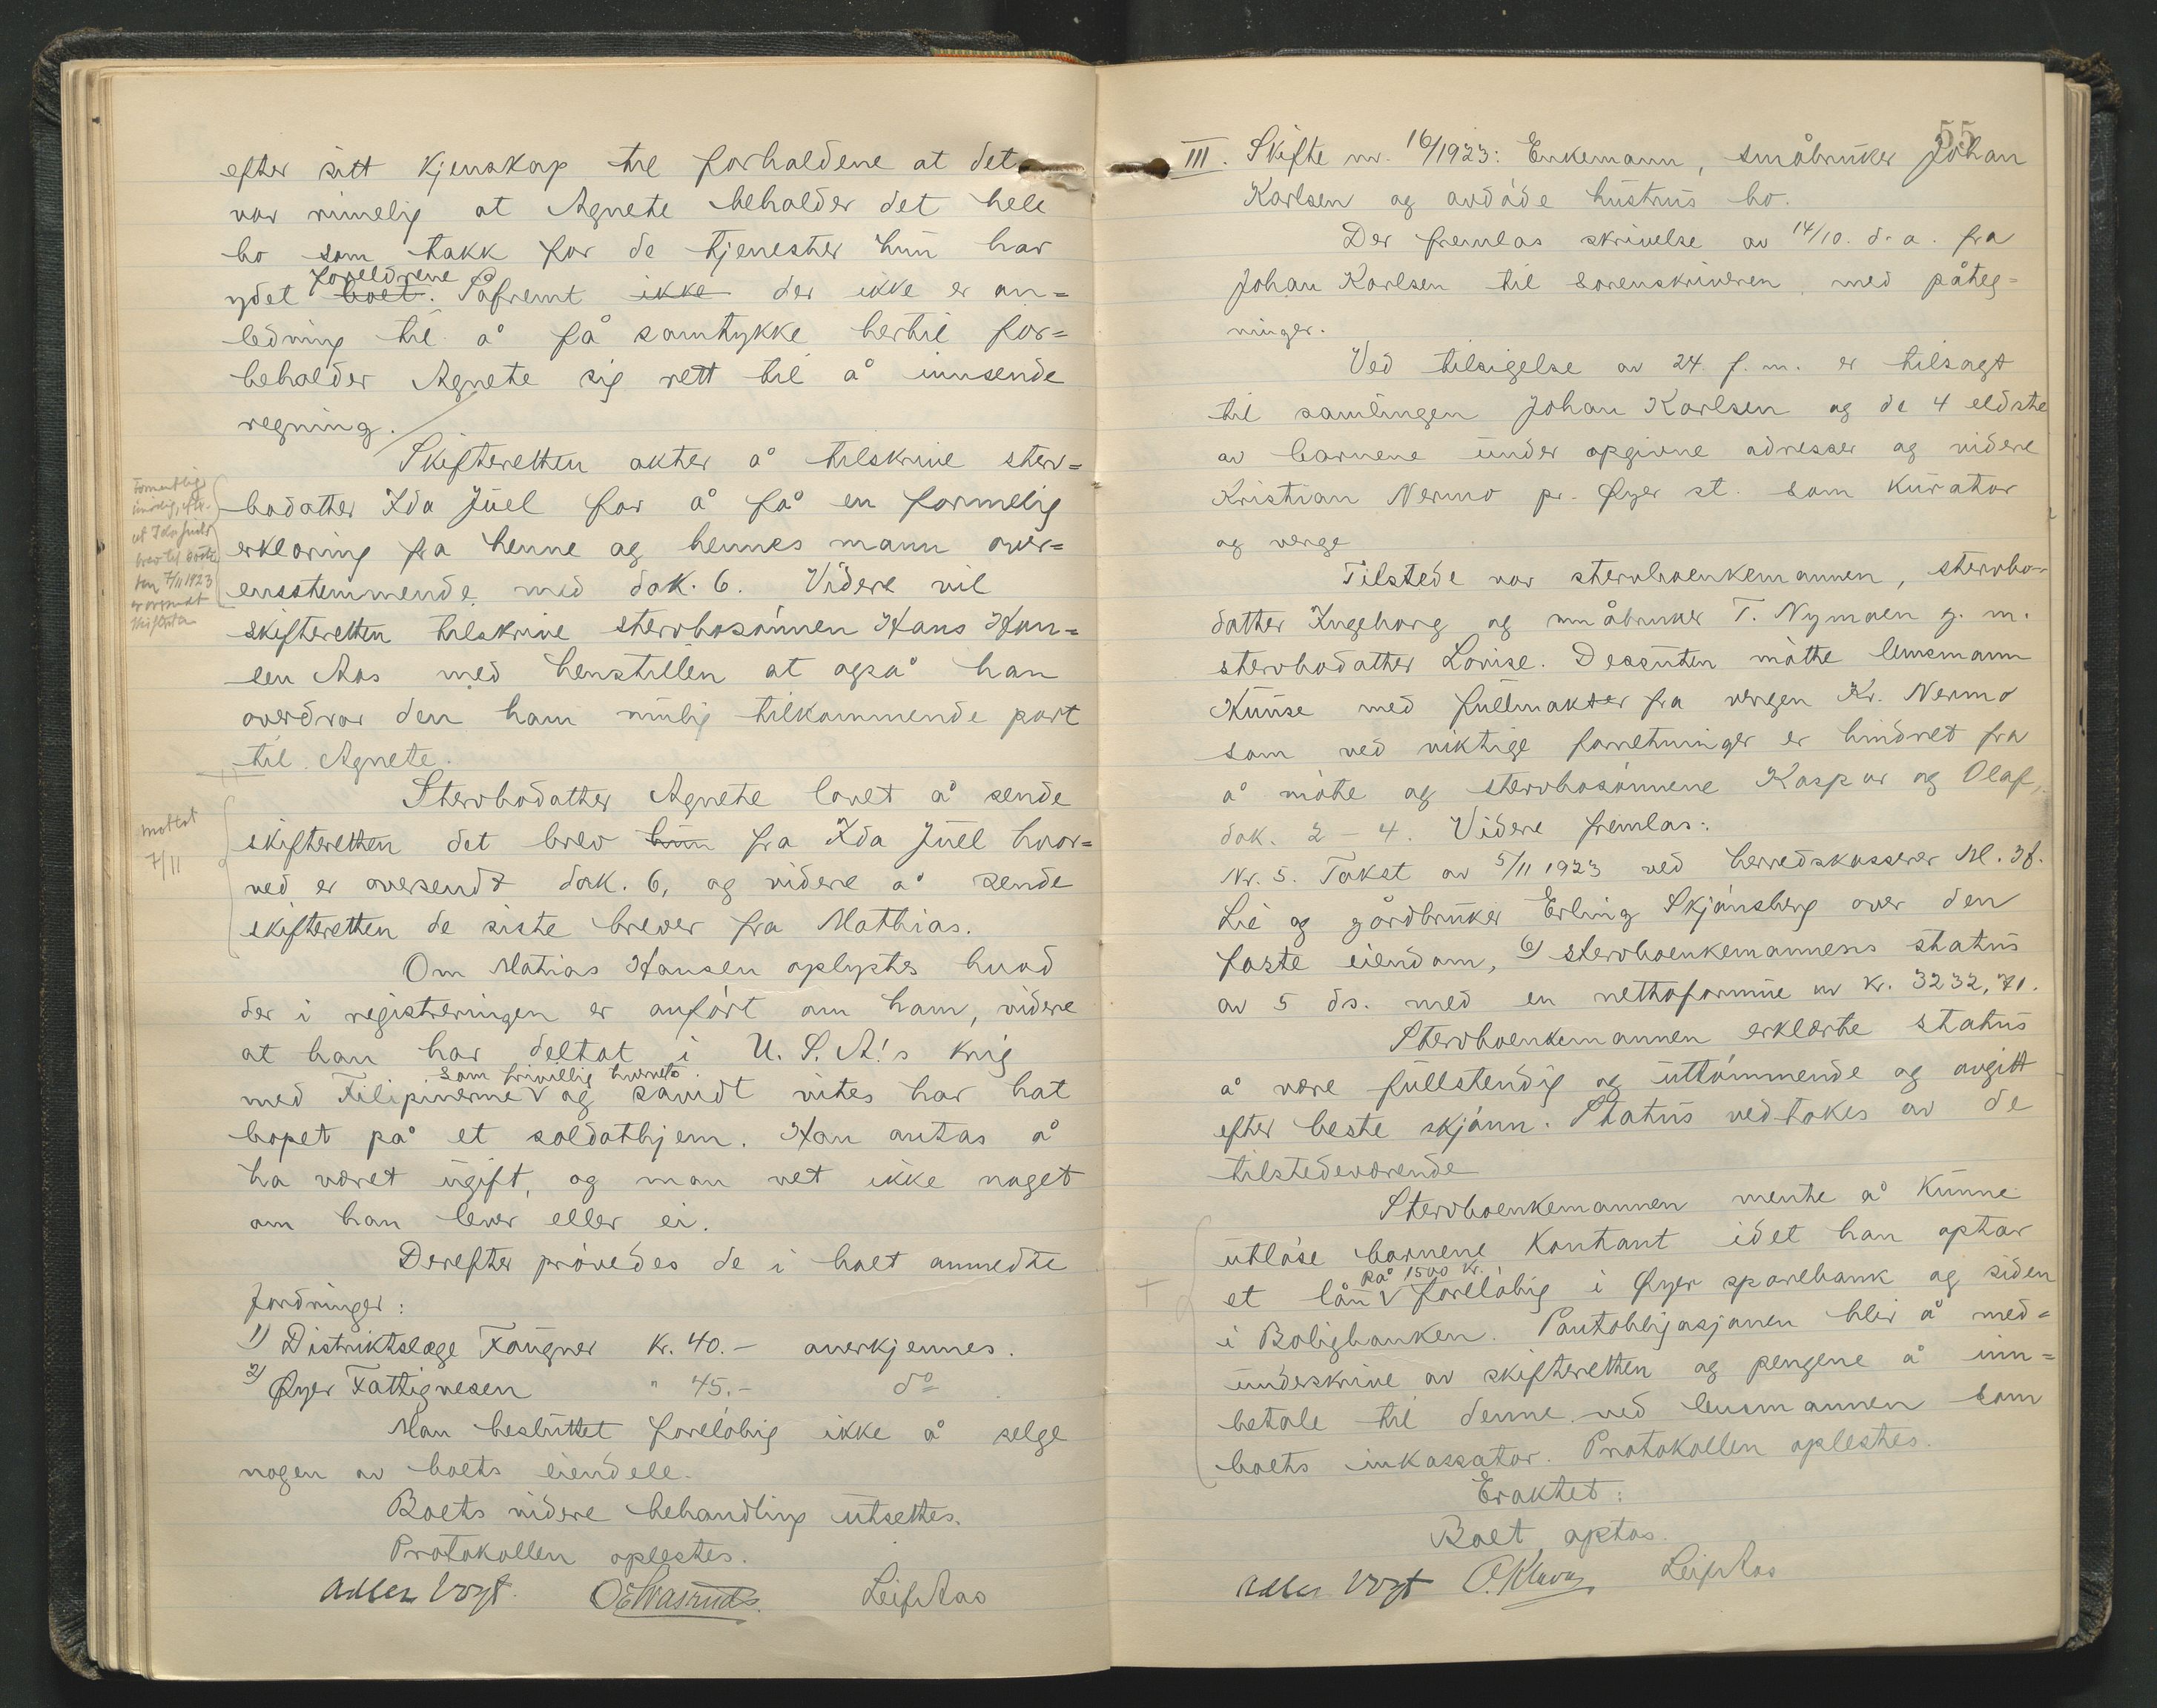 efter sitt kjenskap til forholdene at det
var rimelig at Agnete beholder det hele
bo som takk for de tjenester hun har
foreldrene
ydet boet. Såfremt ikke der ikke er an=
ledning til å få samtykke hertil for=
beholder Agnete sig rett til å innsende
regning.
Skifteretten akter å tilskrive sterv=
bodatter Ida Juel for å få en formelig
erklæring fra henne og hennes mann over=
ensstemmende med dok. 6. Videre vil
skifteretten tilskrive stervbosønnen Hans Han=
sen Aos med henstillen at også han
overdrar den ham mulig tilkommende part
til Agnete.
Stervbodatter Agnete lovet å sende
skifteretten det brev hun fra Ida Juel hvor=
ved er oversendt dok. 6, og videre å sende
skifteretten de siste brever fra Mathias.
mottat
7/11
Om Matias Hansen oplystes hvad
der i registreringen er anført om ham, videre
at han har deltat i U. S. A.'s krig
som frivillig hvervet
med Filipinerne V og savidt vites har hat
bopel på et soldathjem. Han antas å
ha været ugift, og man vet ikke noget
om han lever eller ei.
Derefter prøvedes de i boet anmeldte
fordringer:
1) Distriktslæge Faugner kr. 40.- anerkjennes.
2) Øyer Fattigvesen " 45.- do
Man besluttet foreløbig ikke å selge
nogen av boets eiendele.
Boets videre behandling utsettes.
Protokollen oplestes.
Adler Vogt. Leif Aas
55
III. Skifte nr. 16/1923: Enkemann, småbruker Johan
Karlsen og avdøde hustrus bo.
Der fremlas skrivelse av 14/10. d. a. fra
Johan Karlsen til sorenskriveren med påteg=
ninger.
Ved tilsigelse av 24. f. m. er tilsagt
til samlingen Johan Karlsen og de 4 eldste
av barnene under opgivne adresser og videre
Kristian Nermo pr. Øyer st. som kurator
og verge
Tilstede var stervboenkemannen, stervbo-
datter Ingeborg og småbruker T. Nymoen g. m.
stervbodatter Lovise. Dessuten møtte lensmann
med fullmakter fra vergen Kr. Nermo
som ved viktige forretninger er hindret fra
å møte og stervbosønnene Kaspar og Olaf,
dok. 2 - 4. Videre fremlas:
Nr. 5. Takst av 5/11 1923 ved herredskasserer M. H.
Lie og gårdbruker Erling Skjønsberg over den
faste eiendom, 6) stervboenkemannens status
av 5 ds. med en nettoformue av kr. 3232,71.
Stervboenkemannen erklærte status
å være fullstendig og uttømmende og avgitt
efter beste skjønn. Status vedtokes av de
tilstedeværende
Stervboenkemannen mente å kunne
utløse barnene kontant idet han optar
på 1500 kr.
et lån V foreløbig i Øyer sparebank og siden
i Boligbanken. Pantobligasjonen blir å med=
underskrive av skifteretten og pengene å inn=
betale til denne ved lensmannen som
boets inkassator. Protokollen oplestes.
Eraktet:
Boet optas.
Adler Vogt Leif Aas